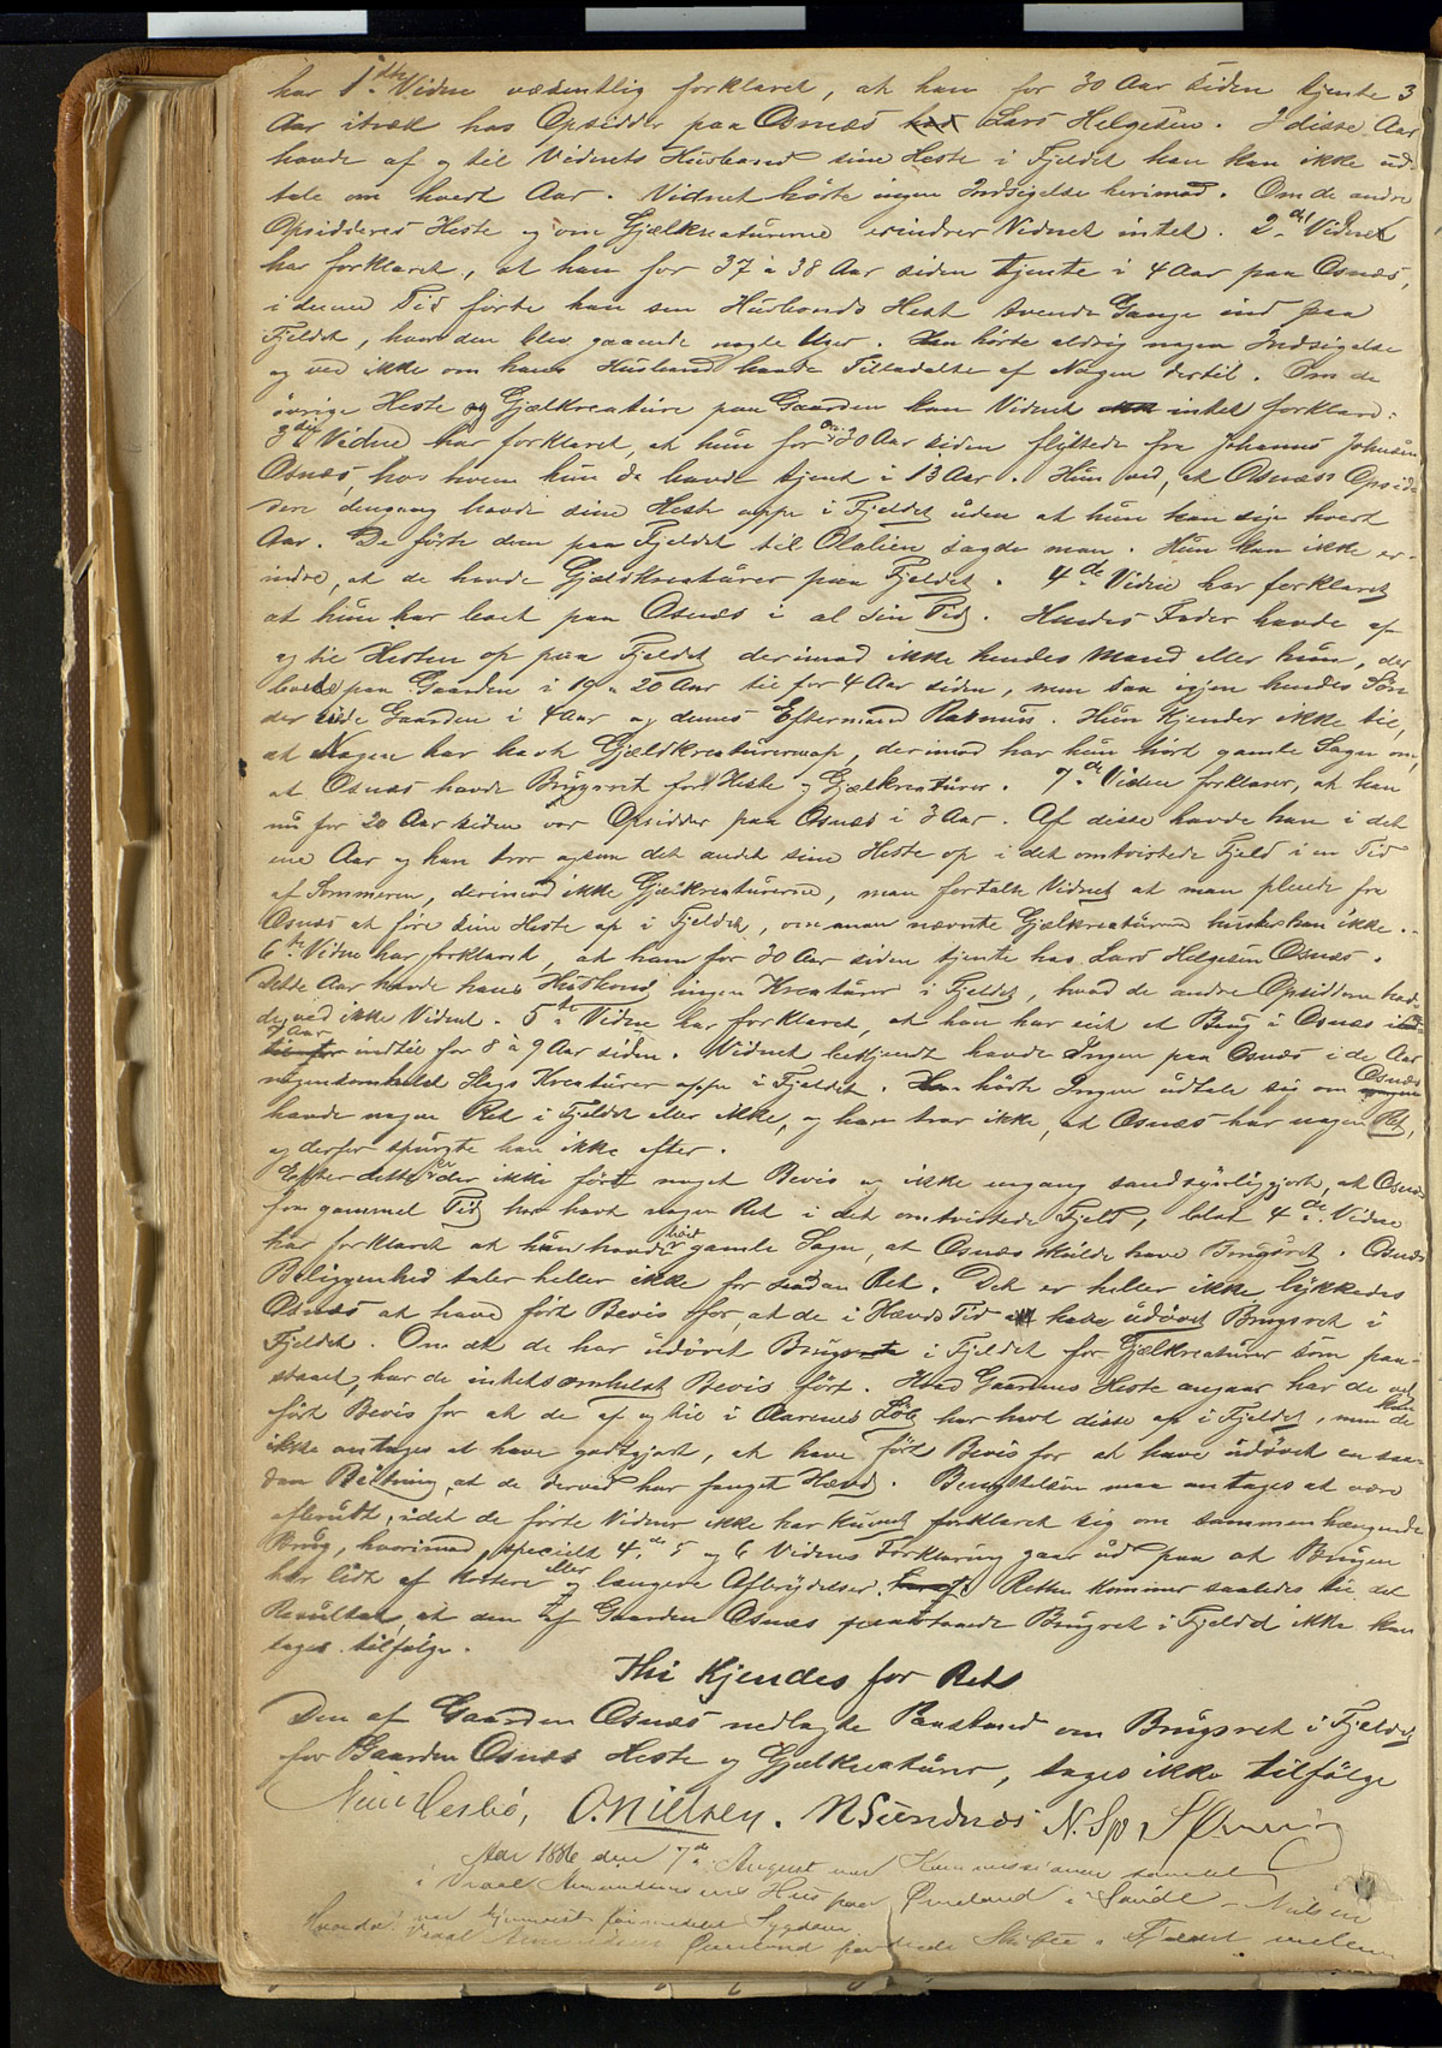 har 1ste Vidne væsentlig forklaret, at han for 30 Aar siden tjente 3
Aar itræk hos Opsidder paa Osnæs Lars Helgesen. I disse Aar
havde af og til Vidnets Husbond sine Heste i Fjeldet han kan ikke ud-
tale om hvert Aar. Vidnet hørte ingen Indsigelse herimod. Om de andre
Opsidderes Heste og om Gjælkreaturerne erindrer Vidnet intet. 2det Vidne
har forklaret, at han for 37 à 38 Aar siden tjente i 4 Aar paa Osnæs,
i denne Tid førte han sin Husbonds Hest tvende Gange ind paa
Fjeldet, hvor den blev gaaende nogle Uger. Han hørte aldrig nogen Indsigelse
og ved ikke om hans Husbond havde Tilladelse af Nogen dertil. Om de
øvrige Heste og Gjælkreature paa Gaarden kan Vidnet intet forklare.
3die Vidne har forklaret, at hun for 30 Aar siden flyttede fra Johannes Johnsen
Osnæs, hos hvem hun da havde tjent i 13 Aar. Hun ved, at Osnæs Opsid-
dere dengang havde sine Heste oppe i Fjeldet uden at hun kan sige hvert
Aar. De førte dem paa Fjeldet til Olalien sagde man. Hun kan ikke er-
indre, at de havde Gjældkreaturer paa Fjeldet. 4de Vidne har forklaret
at hun har levet paa Osnæs i al sin Tid. Hendes Fader havde af
og til Hesten op paa Fjeldet derimod ikke hendes Mand eller hun, der
levede paa Gaarden i 19 à 20 Aar til for 4 Aar siden, men saa igjen hendes Søn
der eide Gaarden i 4 Aar og dennes Eftermand Rasmus. Hun kjender ikke til,
at Nogen har havt Gjældkreaturerne op, derimod har hun hørt gamle Sagn om,
at Osnæs havde Brugsret for Heste og Gjælkreaturer. 7de Vidne forklarer, at han
nu for 20 Aar siden var Opsidder paa Osnæs i 3 Aar. Af disse havde han i det
ene Aar og han tror ogsaa det andet sine Heste op i det omtvistede Fjeld i en Tid
af Sommeren, derimod ikke Gjælkreaturerne, man fortalte Vidnet at man pleiede fra
Osnæs at føre sine Heste op i Fjeldet, om man nævnte Gjælkreaturerne husker han ikke.
6te Vidne har forklaret, at han for 30 Aar siden tjente hos Lars Helgesen Osnæs.
Dette Aar havde hans Husbond ingen Kreaturer i Fjeldet, hvad de andre Opsiddere had-
de ved ikke Vidnet. 5te Vidne har forklaret, at han har eiet et Brug i Osnæs i
7 Aar indtil for 8 à 9 Aar siden. Vidnet bekjendt havde Ingen paa Osnæs i de Aar
nogensomhelst Slags Kreaturer oppe i Fjeldet. Han hørte Ingen udtale sig om Osnæs
havde nogen Ret i Fjeldet eller ikke, og han tror ikke, at Osnæs har nogen Ret,
og derfor spurgte han ikke efter.
Efter dette er der ikke ført noget Bevis og ikke engang sandsynliggjort, at Osnæs
fra gammel Tid har havt nogen Ret i det omtvistede Fjeld, blot 4de Vidne
har forklaret at hun havde hørt gamle Sagn, at Osnæs skulde have Brugsret. Osnæs
Beliggenhed taler heller ikke for saadan Ret. Det er heller ikke lykkedes
Osnæs at have ført Bevis for, at de i Hævds Tid have udøvet Brugsret i
Fjeldet. Om at de har udøvet Brugsret i Fjeldet for Gjælkreaturer som paa-
staaet, har de intetsomhelst Bevis ført. Hvad Gaardens Heste angaar har de vel
ført Bevis for at de af og til i Aarenes Løb har havt disse op i Fjeldet, men de kan
ikke antages at have godtgjort, at have ført Bevis for at have udøvet en saa-
dan Beitning, at de derved har fanget Hævd. Benyttelsen maa antages at være
afbrudt, idet de førte Vidner ikke har kunnet forklaret sig om sammenhængende
Brug, hvorimod specielt 4de 5 og 6 Vidnes Forklaring gaar ud paa at Brugen
har lidt af kortere eller længere Afbrydelser. Retten kommer saaledes til det
Resultat, at den af Gaarden Osnæs paastaaede Brugsret i Fjeldet ikke kan
tages tilfølge.
Thi Kjendes for Ret
Den af Gaarden Osnæs nedlagte Paastand om Brugsret i Fjeldet
for Gaarden Osnæs Heste og Gjælkreaturer, tages ikke tilfølge
O. Nielsen. N Sundnæs N. Sp.
Aar 1886 den 7de August var Kommissionen samlet
i Vraal Amundsens Hus paa Øvreland i Saude - Nielsen
var Sygdom
Vraal Amundsen Øvreland Skifte i Fjeldet mellem